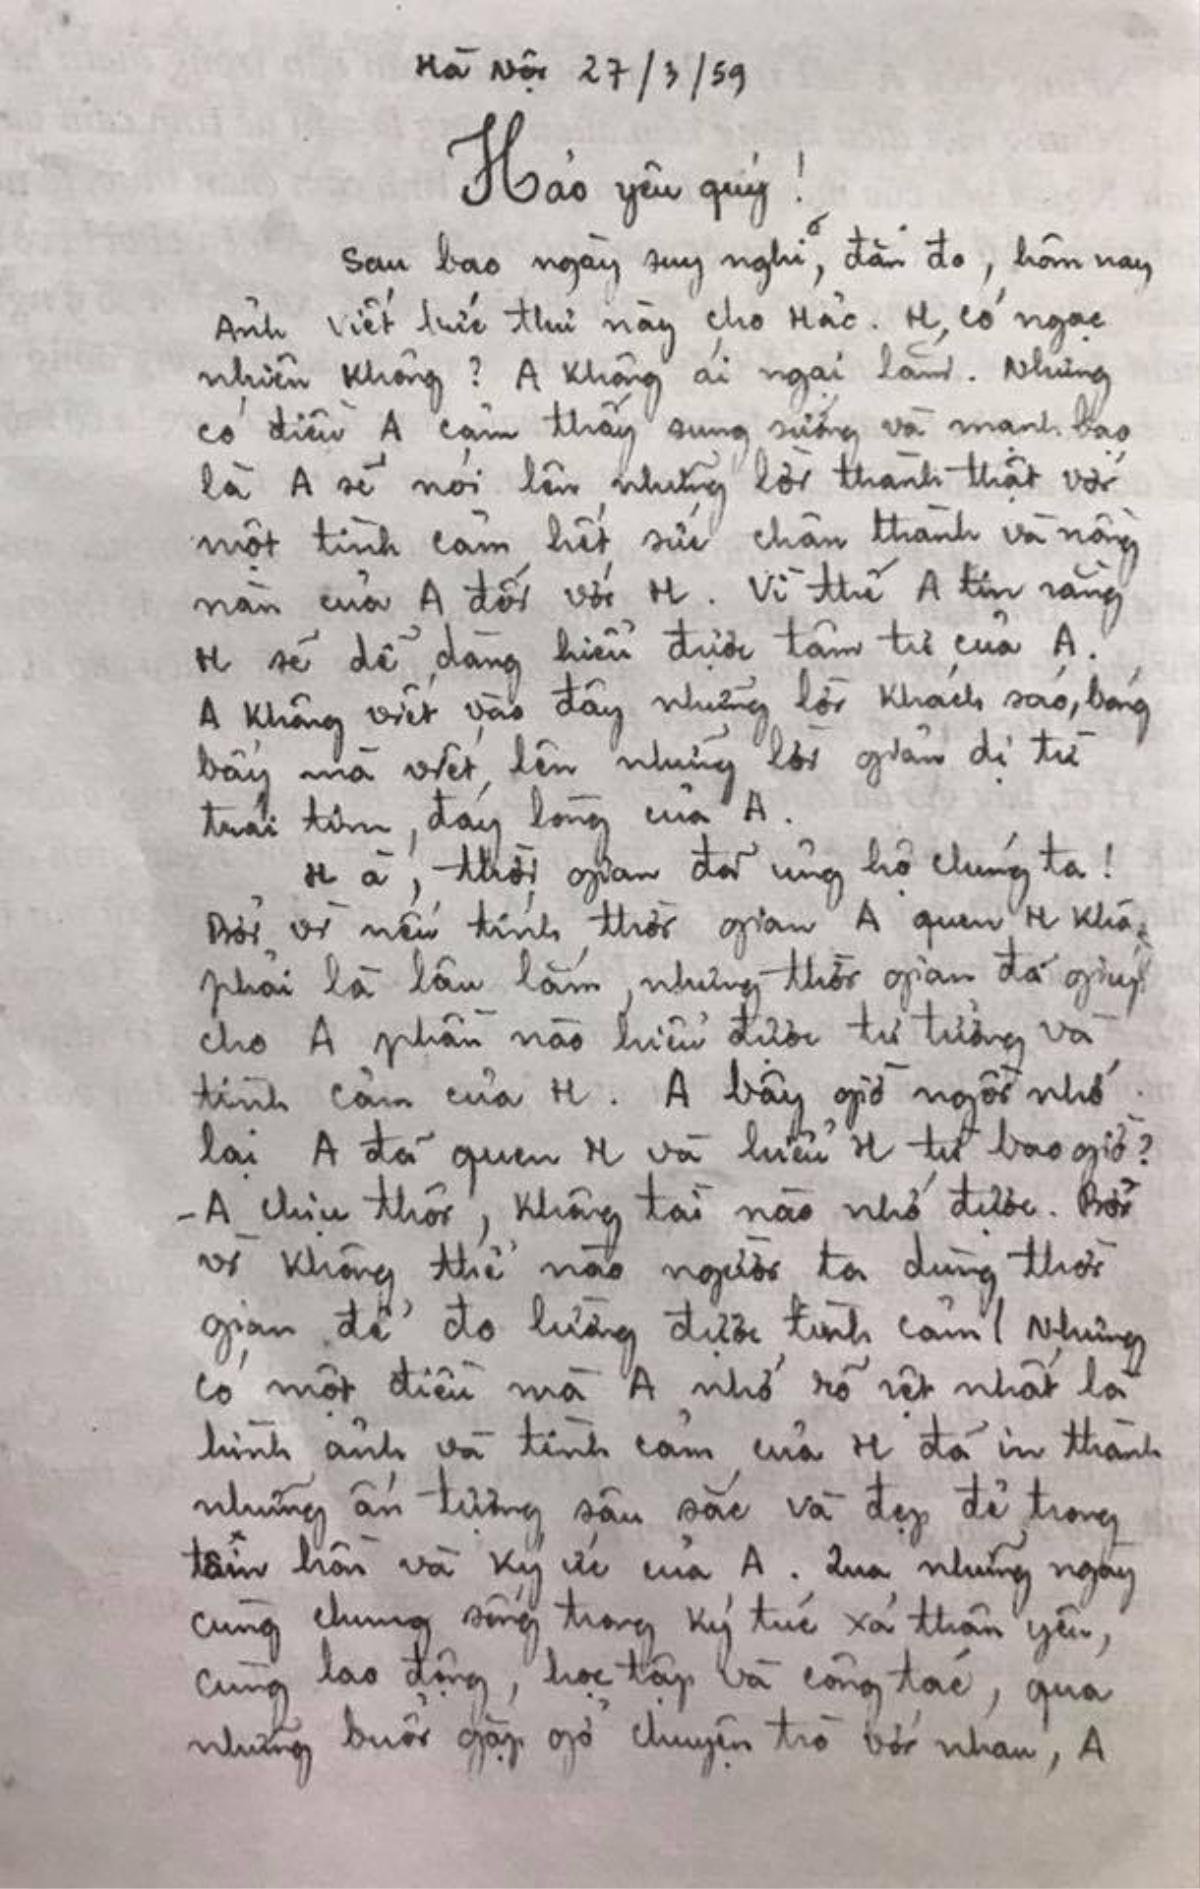 Hà Nội 27/3/59
Hảo yêu quý!
Sau bao ngày suy nghĩ, đắn đo, hôm nay
Ảnh viết bức thư này cho Hảo. H, có ngạc
nhiên không? A không ái ngại lắm. Nhưng
có điều A cảm thấy sung sướng và mạnh bạo
là A sẽ nói lên những lời thành thật với
một tình cảm hết sức chân thành và nồng
nàn của A đối với H. Vì thế A tin rằng
H sẽ dễ dàng hiểu được tâm tư của A.
A không viết vào đây những lời khách sáo, bóng
bẩy mà viết lên những lời giản dị từ
trái tim, đáy lòng của A.
H à, thời gian đã ủng hộ chúng ta!
Bởi vì nếu tính thời gian A quen H khô.
phải là lâu lắm, nhưng thời gian đã giúp
cho A phần nào hiểu được tư tưởng và
tình cảm của H. A bây giờ ngồi nhớ
lại A đã quen H và hiểu H từ bao giờ?
- A chịu thôi, không tài nào nhớ được. Bởi
vì không thể nào người ta dùng thời
gian để đo lường được tình cảm! Nhưng
có một điều mà A nhớ rõ rệt nhất là
hình ảnh và tình cảm của H đã in thành
những ấn tượng sâu sắc và đẹp đẽ trong
tâm hồn và ký ức của A. Qua những ngày
cùng chung sống trong ký túc xá thân yêu,
cùng lao động, học tập và công tác, qua
những buổi gặp gỡ chuyện trò với nhau, A